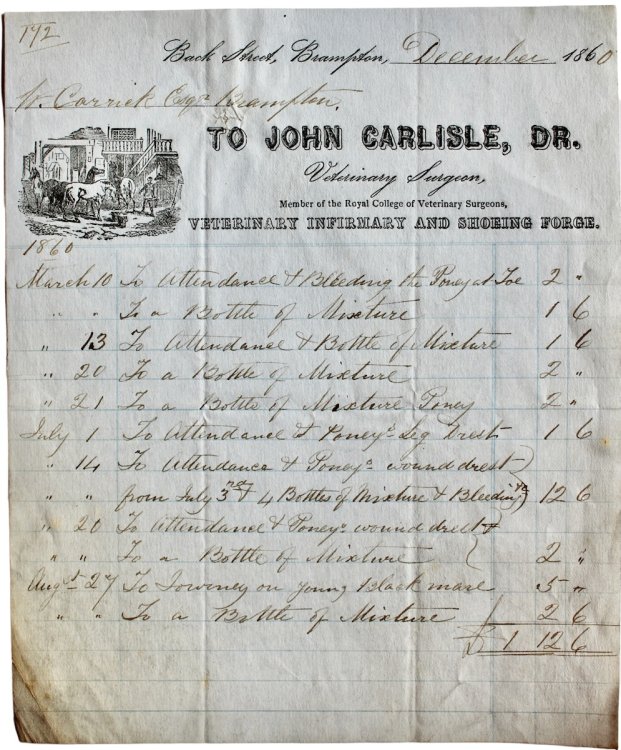 172
Back Street, Brampton, December 1860
W. Carrick Esqr. Brampton.
TO JOHN CARLISLE, DR.
Veterinary Surgeon,
Member of the Royal College of Veterinary Surgeons,
VETERINARY INFIRMARY AND SHOEING FORGE.
1860
March 10 To Attendance & Bleeding the Poney at Toe 2 "
" " To a Bottle of Mixture 1 6
" 13 To Attendance & Bottle of Mixture 1 6
" 20 To a Bottle of Mixture 2 "
" 21 To a Bottle of Mixture Poney 2 "
July 1 To Attendance & Poney's Leg drest 1 6
" 14 To Attendance & Poney's wound drest
" " from July 3rd & 4 Bottles of Mixture & Bleeding &c 12 6
" 20 To Attendance & Poney's wound drest &
" " To a Bottle of Mixture 2 "
Augst 27 To Journey on young Black mare 5 "
" " To a Bottle of Mixture 2 6
£ 1 12 6